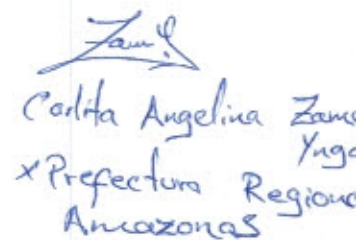 Carlita Angelina Zam
Ynga
xPrefectura Regiona
Amazonas